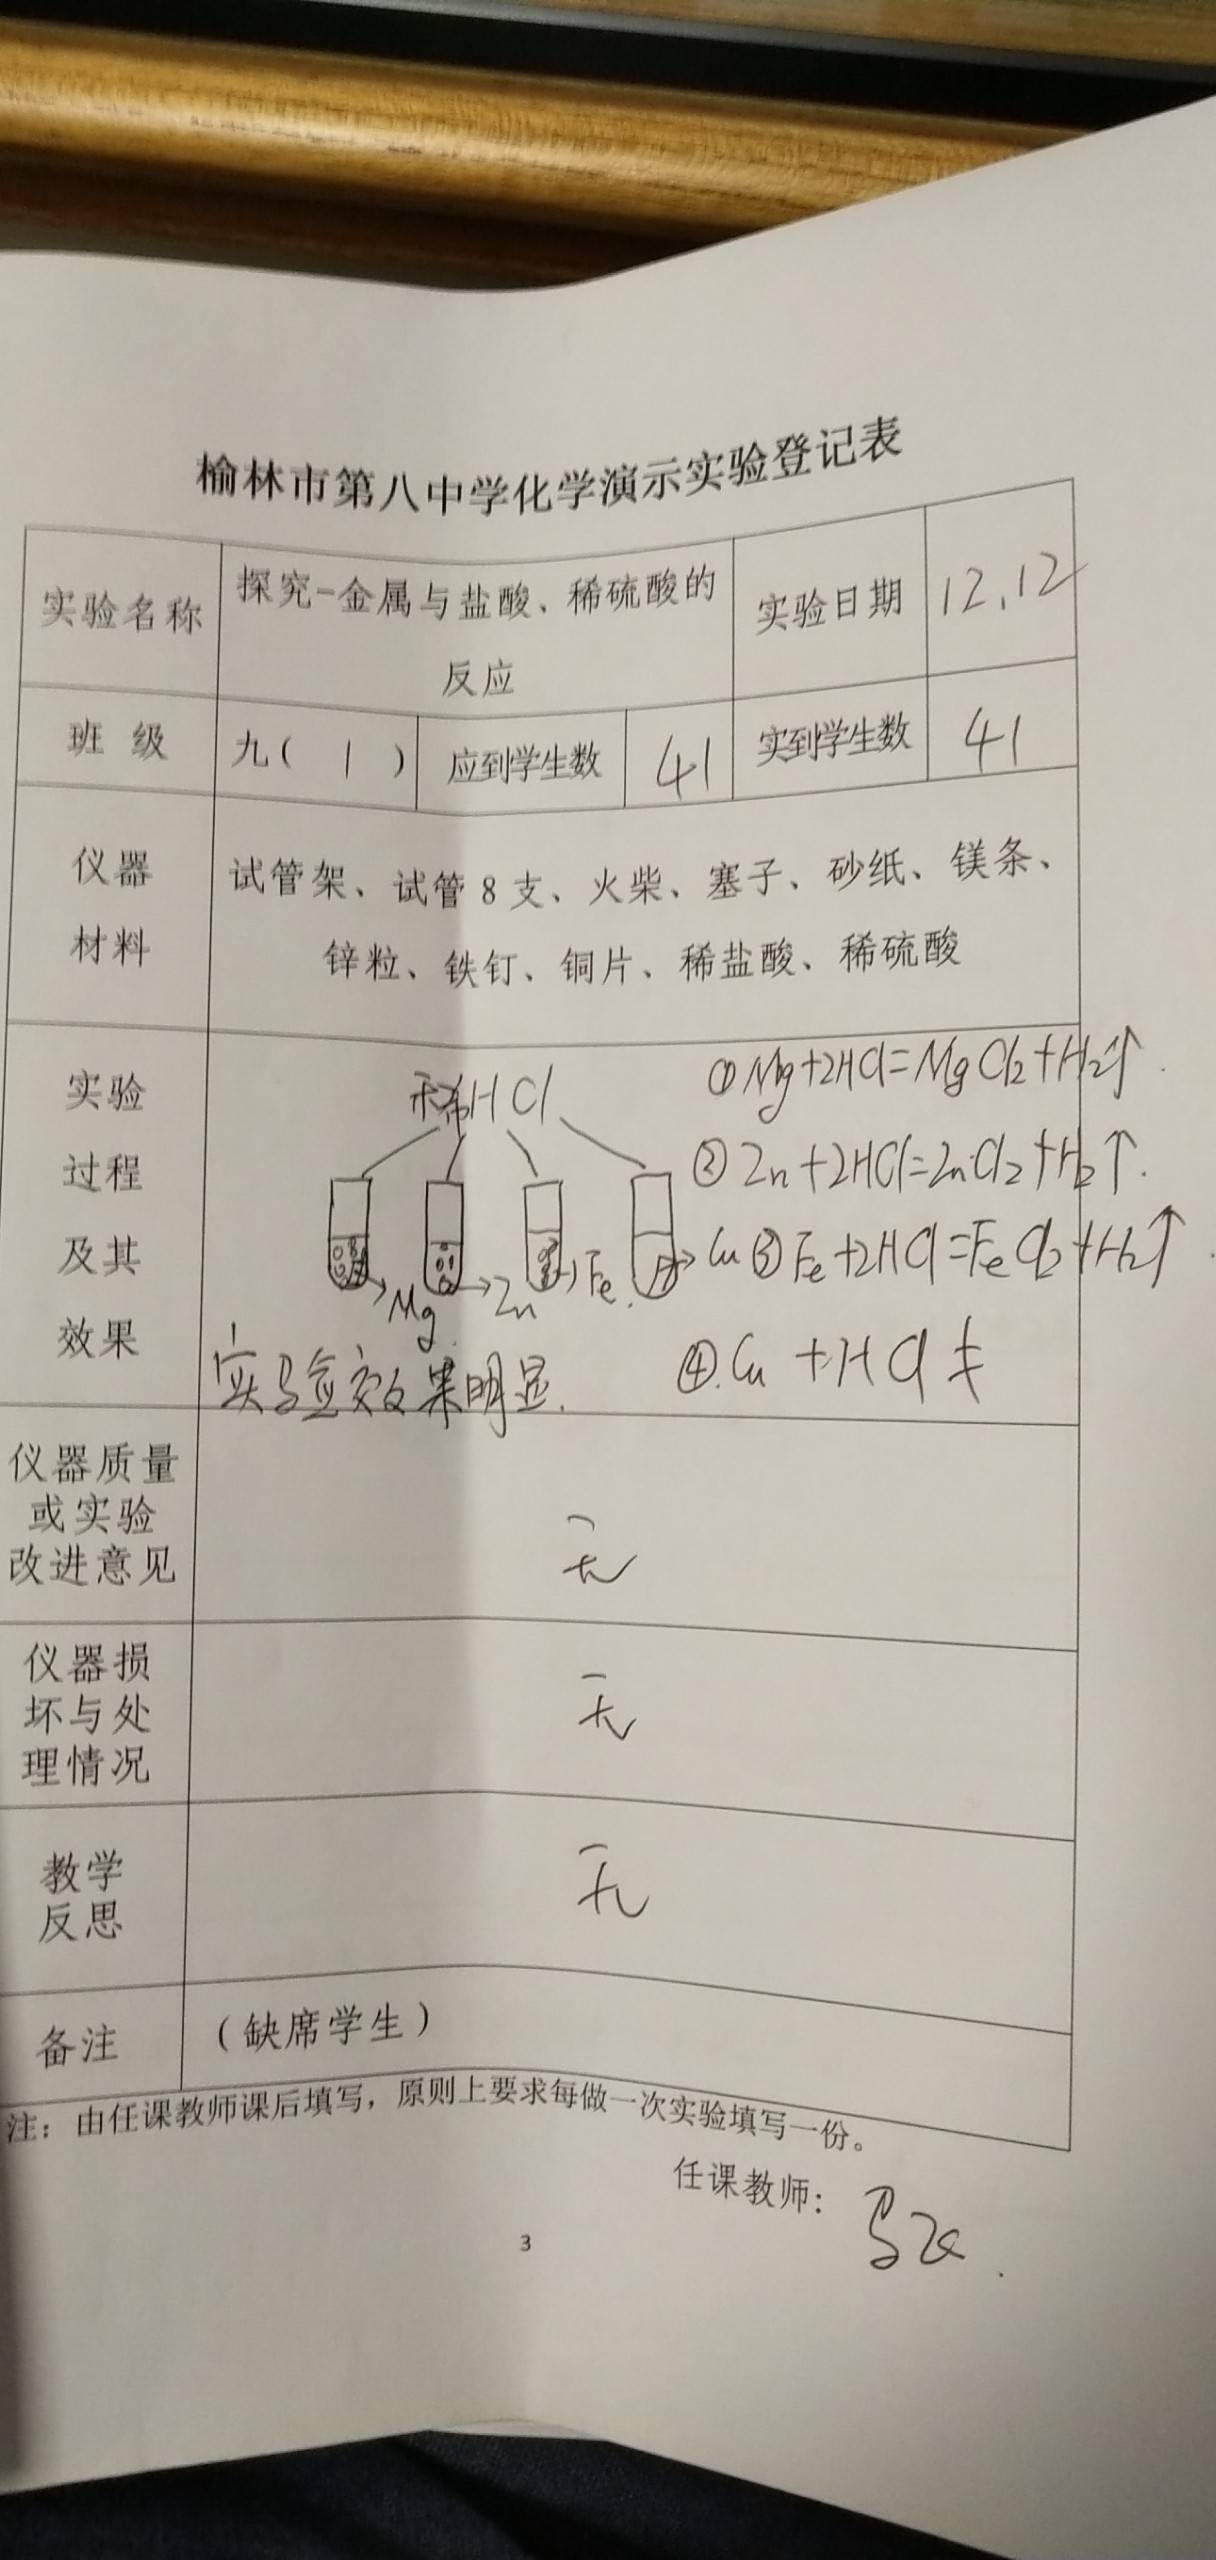 榆林市第八中学化学演示实验登记表
实验名称
探究-金属与盐酸、稀硫酸的
反应
实验日期
12.12
班 级
九( 1 )
应到学生数
41
实到学生数
41
仪器
材料
试管架、试管 8 支、火柴、塞子、砂纸、镁条、
锌粒、铁钉、铜片、稀盐酸、稀硫酸
实验
过程
及其
效果
稀HCl
Mg
Zn
Fe
Cu
①Mg+2HCl=MgCl2+H2↑
②Zn+2HCl=ZnCl2+H2↑
③Fe+2HCl=FeCl2+H2↑
④Cu+HCl≠
实验效果明显.
仪器质量
或实验
改进意见
无
仪器损
坏与处
理情况
无
教学
反思
无
备注
(缺席学生)
注：由任课教师课后填写，原则上要求每做一次实验填写一份。
任课教师：
3